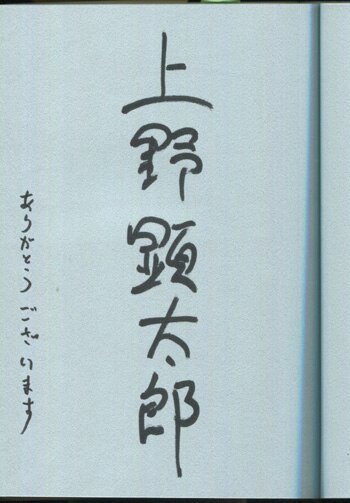 上野顕太郎
ありがとうございます